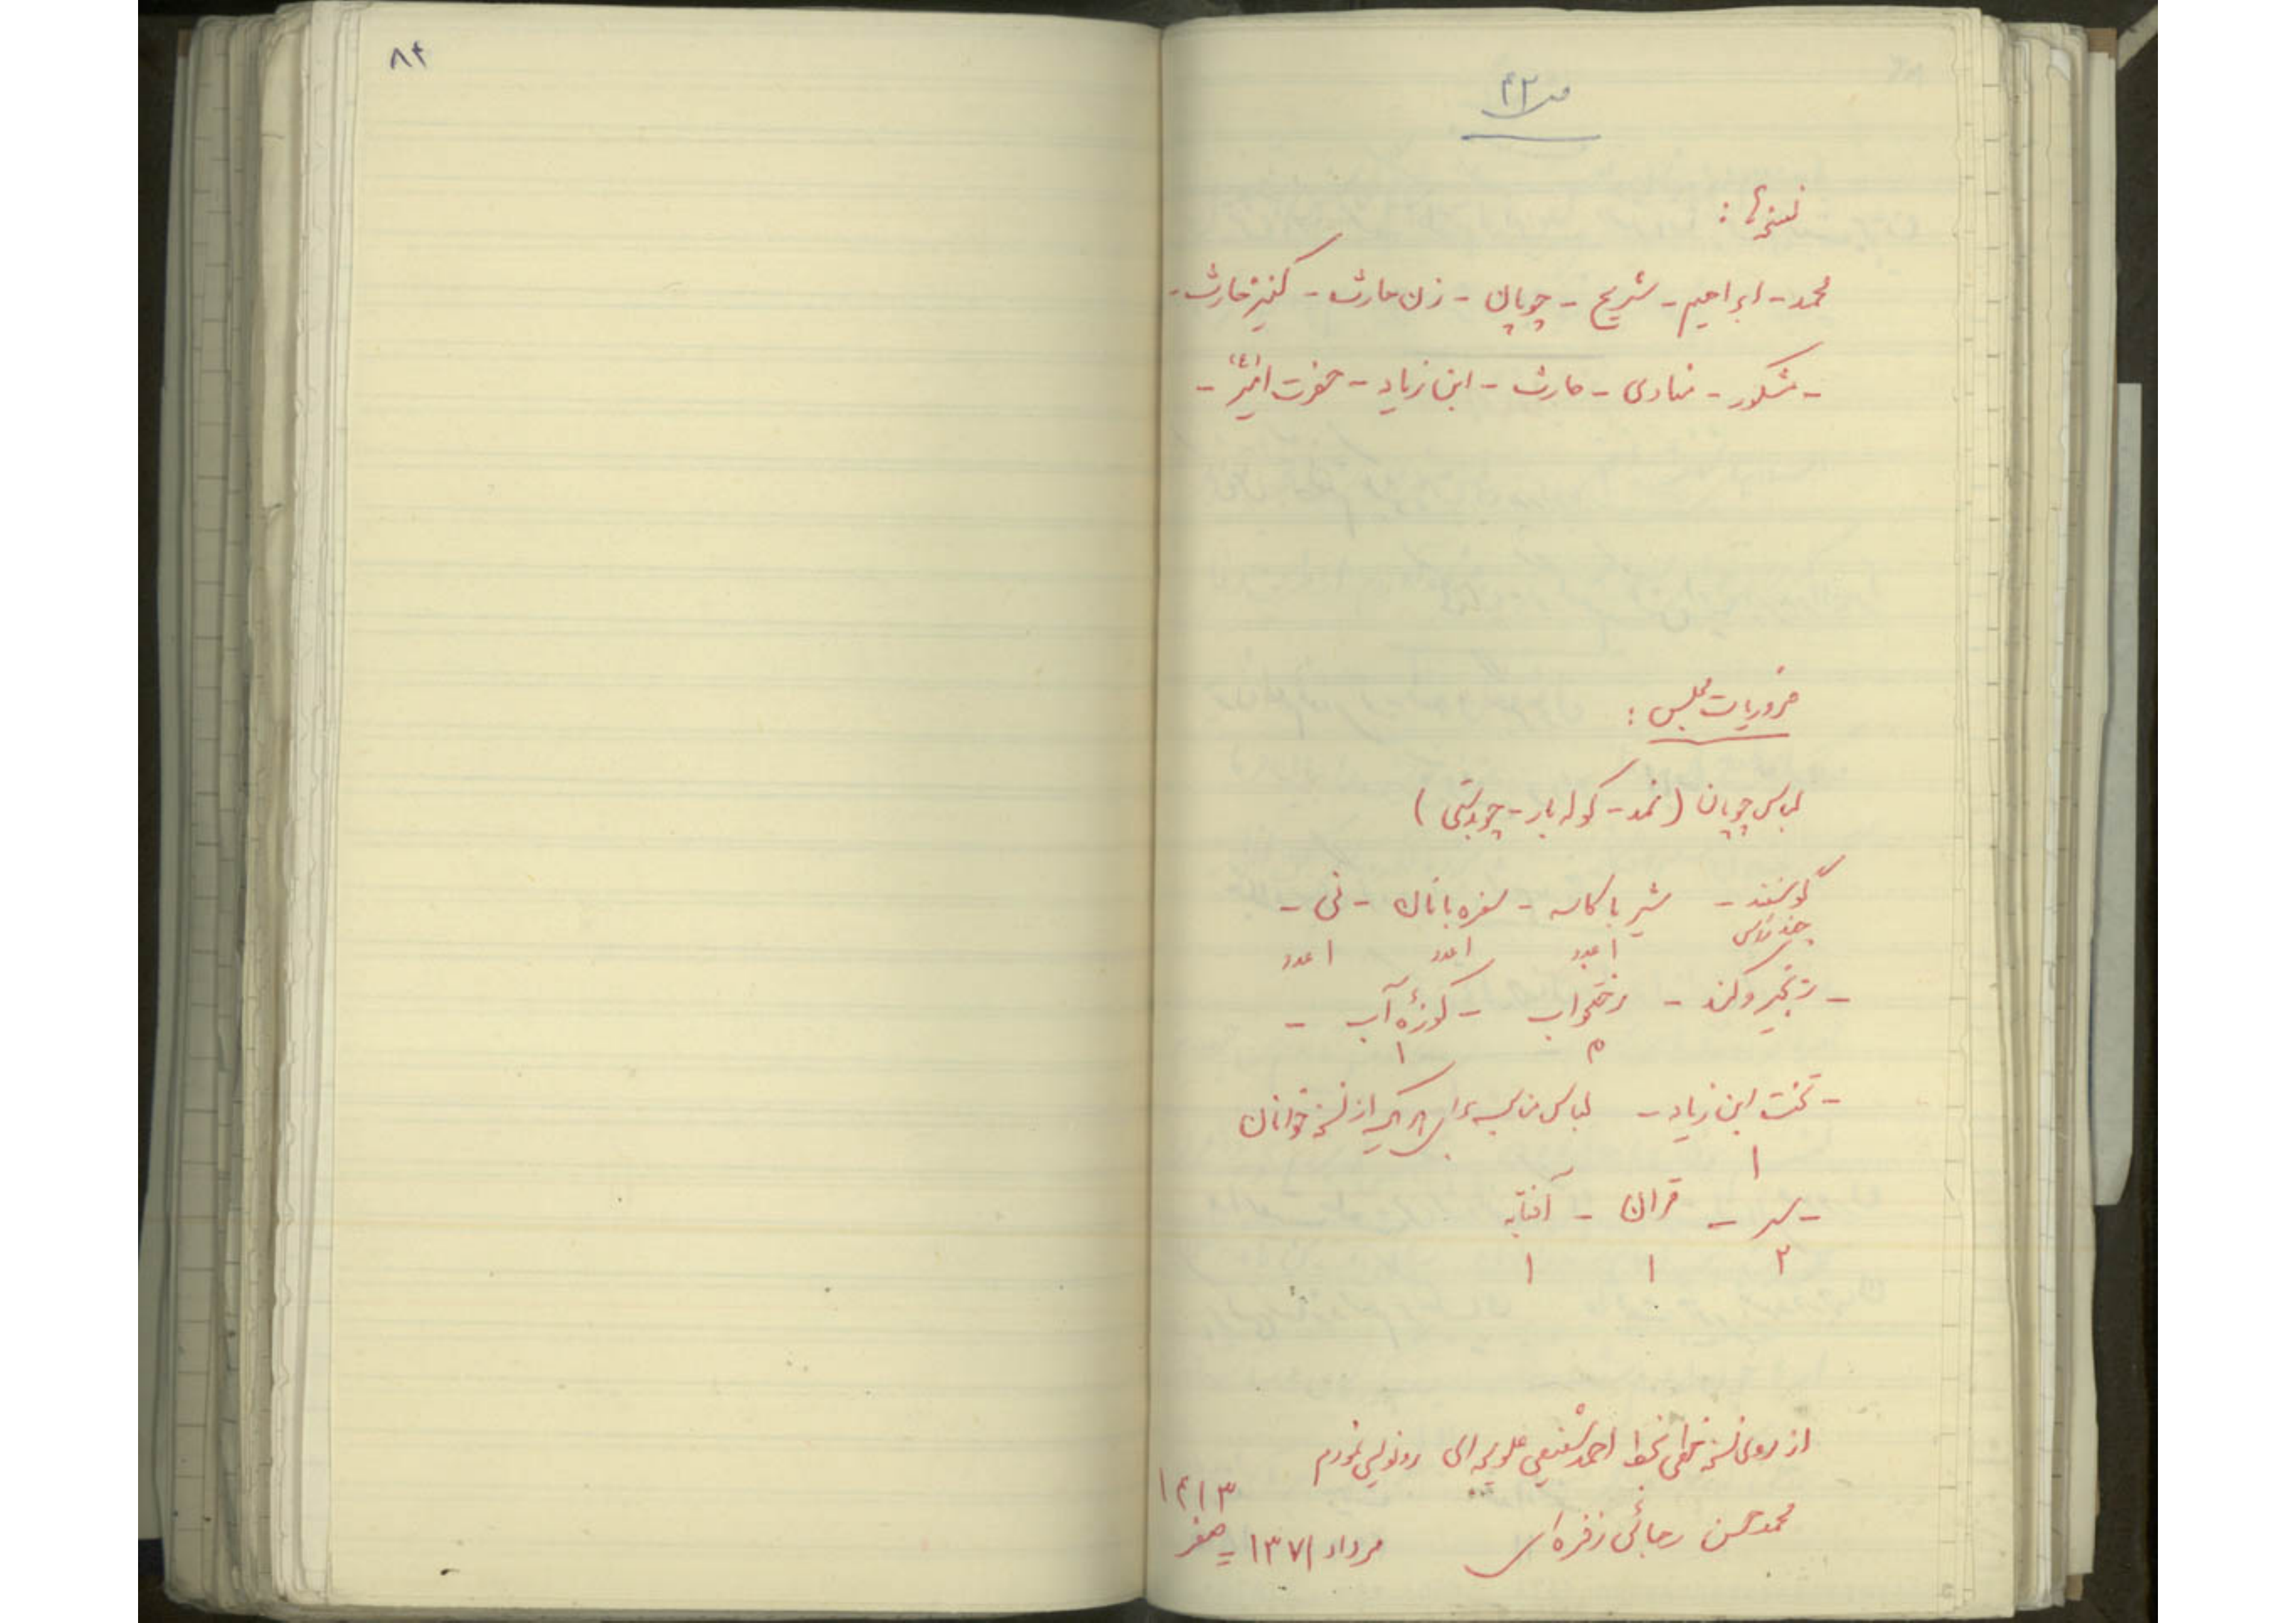 ص ۴۲
نسخه‌ها :
محمد - ابراهیم - شریح - چوپان - زن حارث - کنیز حارث -
- مشکور - منادی - حارث - ابن زیاد - حضرت امیر (ع) -
ضروریات مجلس :
لباس چوپان (نمد - کوله بار - چوبدستی)
گوسفند - شیر با کاسه - سفره با نان - نی -
چند رأس ۱ عدد ۱ عدد ۱ عدد
- زنجیر و کند - رختخواب - کوزهٔ آب -
۱
- تخت ابن زیاد - لباس مناسب برای هر یک از نسخه خوانان
۱
- سر - قران - آفتابه
۲ ۱ ۱
از روی نسخ خطی بخط احمد شفیعی علویجه‌ای رونویسی نمودم
محمد حسن رجائی زفره‌ای مرداد ۱۳۷۱ = صفر ۱۴۱۳
۸۴